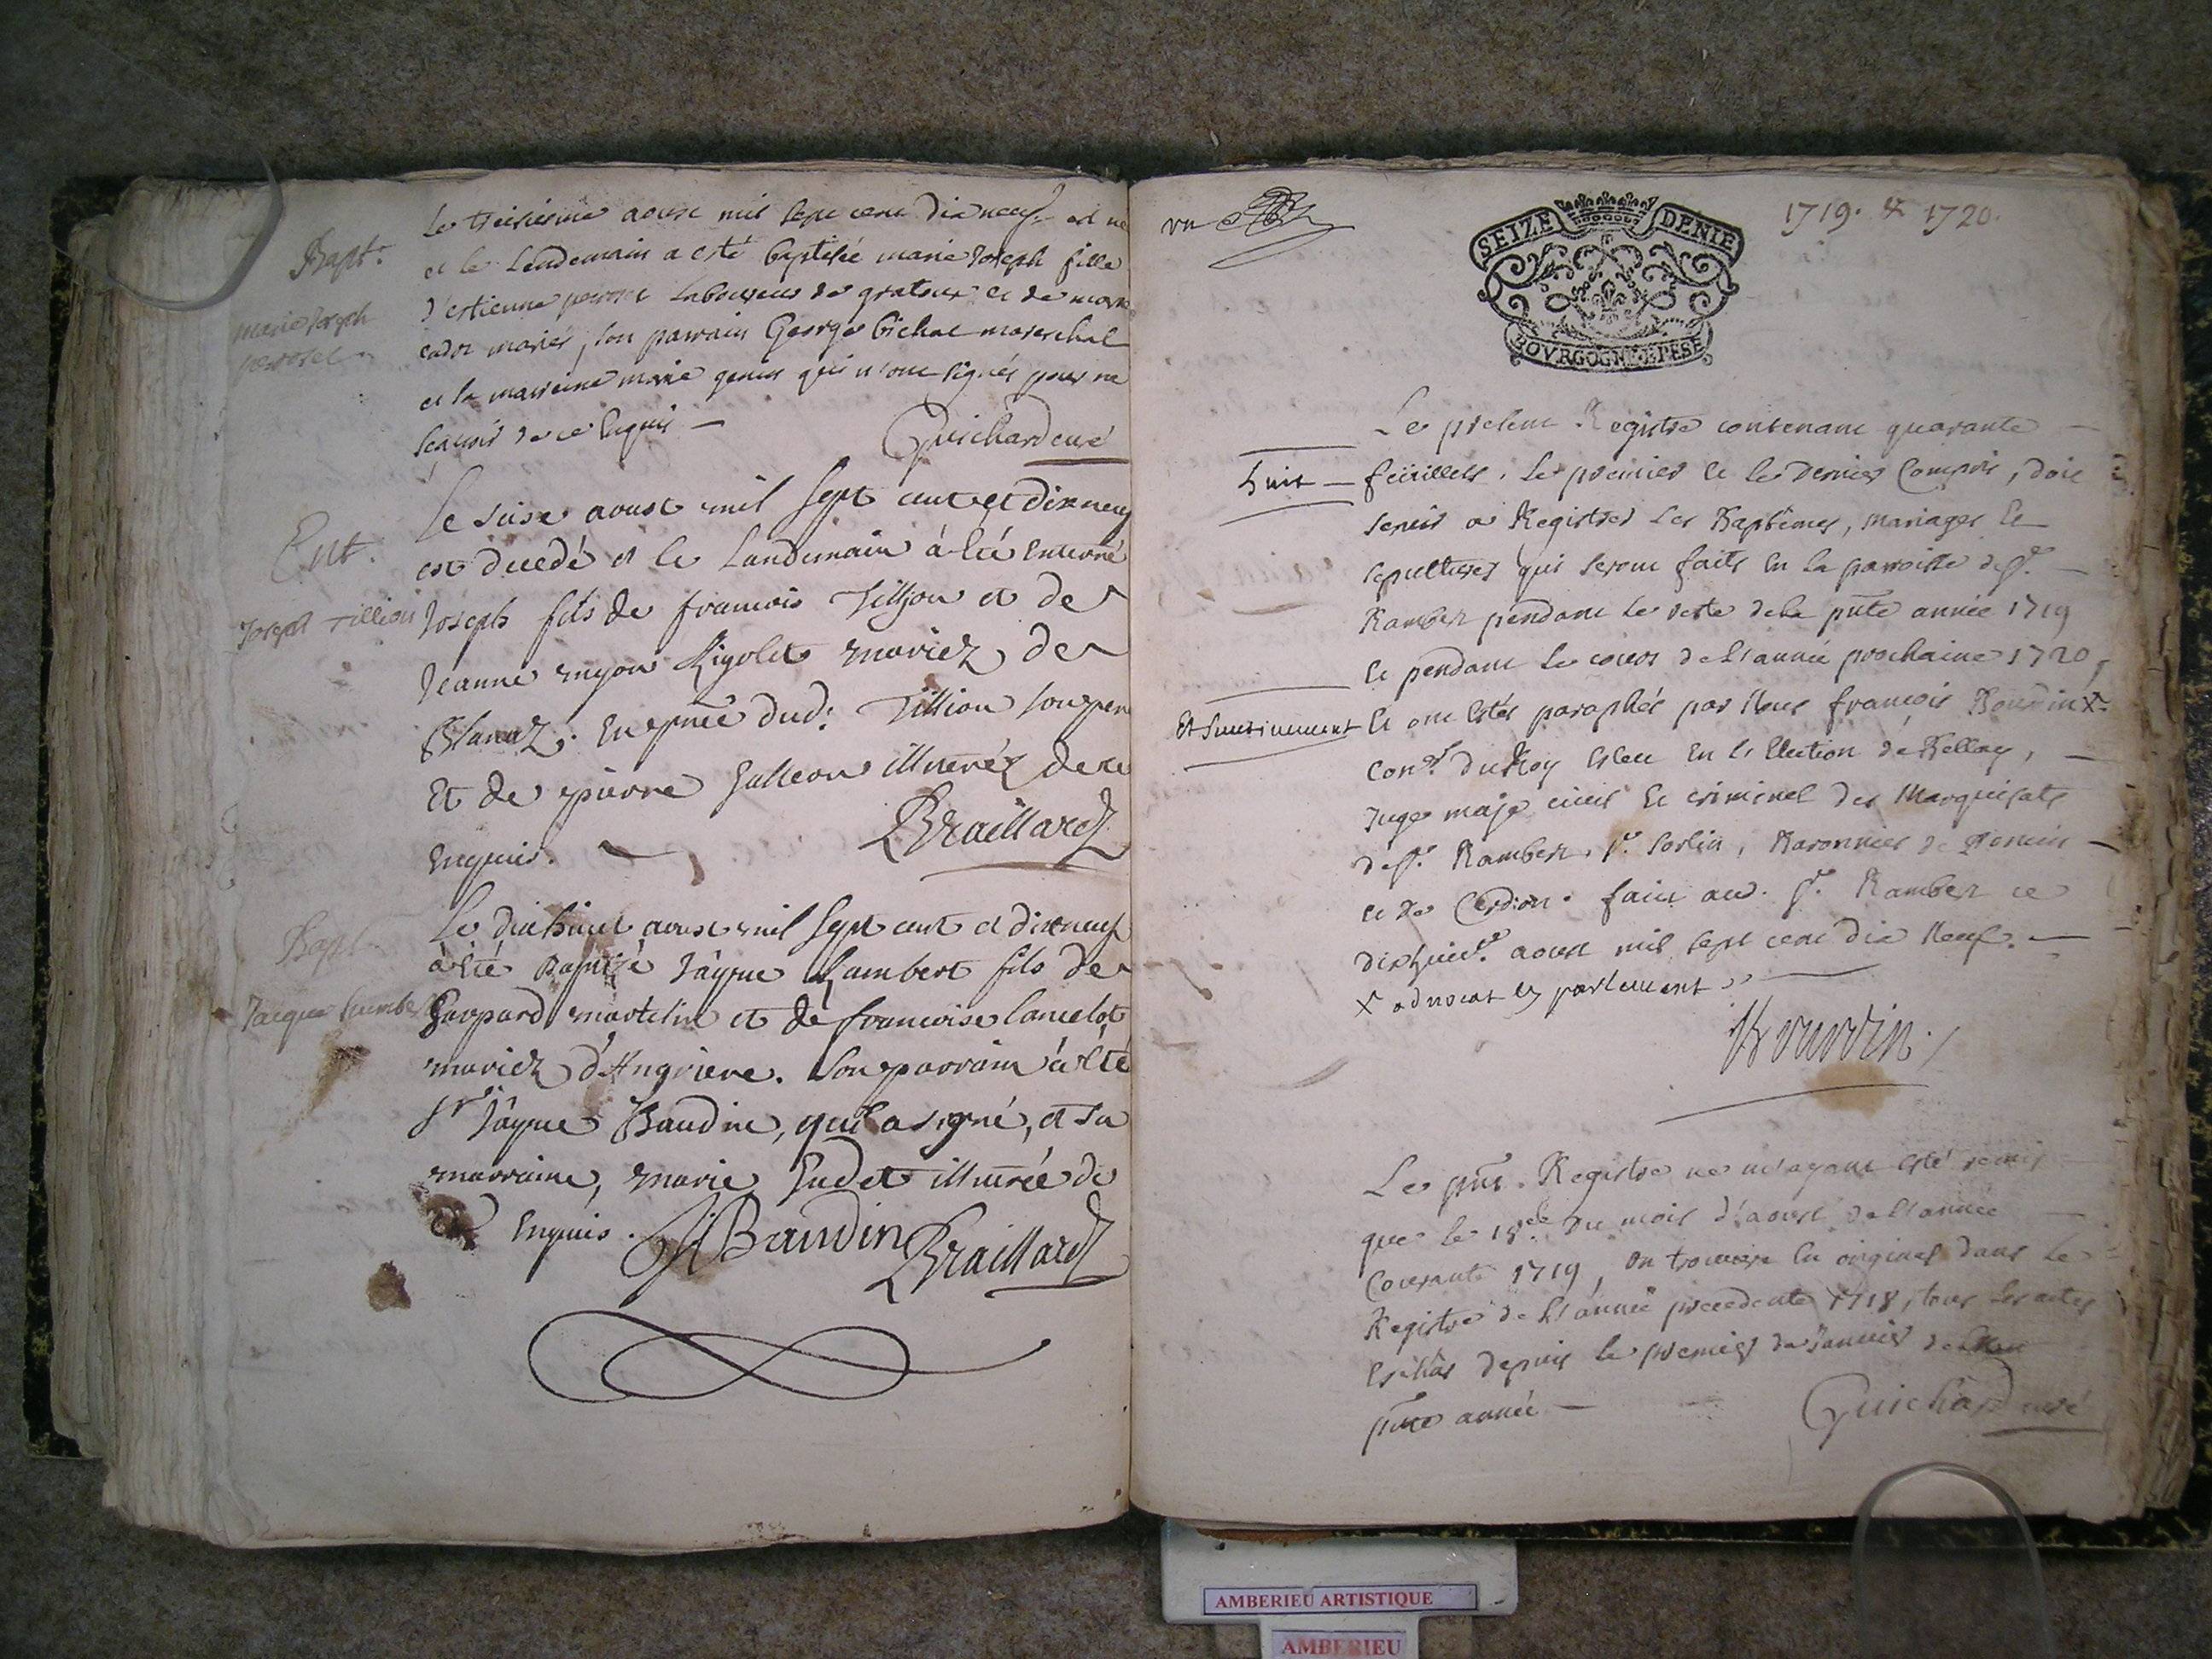 Bapt.
marie Joseph
perroset
Le treisieme aoust mil sept cent dix neuf est né
et le Lendemain a esté baptisée marie Joseph fille
d'estienne laboureur de gratoux et de marie
mariés, son parrain George bichat mareschal
et la marreine marie qui n'ont signés pour ne
scavoir de ce Enquis —
Guichard curé
Ent.
Joseph Tillion
Le seise aoust mil sept cent et dixneuf
est decedé et le Landemain à été Enterré
Joseph fils de francois Tillion et de
Jeanne Rigolet mariez de
Blanaz. En pnce dud: Tillion son pere
Et de pierre illiterez de ce
Enquis.
Braillard
Bapt.
Jacque humbert
Le dixhuict aoust mil sept cent et dixneuf
à été Baptizé Jâque humbert fils de
Gaspard martelin et de francoise lancelot
mariez d'Angriere. Son parrain à été
Sr Jâque Baudin, qui a signé, et sa
marraine, marie illiterée de
ce Enquis.
J Baudin Braillard
vu
SEIZE DENIE
BOVRGOGNE BRESE
1719. & 1720.
Le present Registre contenant quarante —
huit — feüillets, le premier et le dernier Compris, doit
servir a Registrer les Baptêmes, mariages et
sepultures qui seront faits en la parroisse de St. —
Rambert pendant le reste de la pnte année 1719
et pendant le cours de l'année prochaine 1720,
Et Et ont estés paraphés par Nous francois Bouvdin x.
Coner. du Roy esleu en l'Election de Bellay, —
Juge maje civil et criminel des Marquisats
de St. Rambert, St. Sorlin, Baronnies de
et de Cerdon. fait aud. St. Rambert ce
dixhuice. aoust mil sept cent dix Neuf. —
x advocat en parlement
Le pnt. Registre ne m'ayant esté remis
que le 18e. du mois d'aoust de l'année —
Courante 1719, on trouvera en original dans le
Registre de l'année precedente 1718, tous les actes
depuis le premier de Janvier de
pnte année —
Guichard curé
AMBERIEU ARTISTIQUE
AMBERIEU